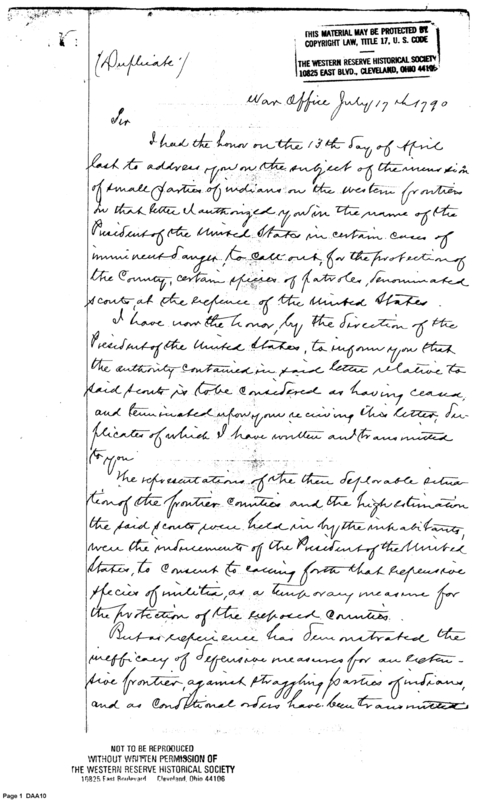 THIS MATERIAL MAY BE PROTECTED BY
COPYRIGHT LAW, TITLE 17, U. S. CODE
THE WESTERN RESERVE HISTORICAL SOCIETY
10825 EAST BLVD., CLEVELAND, OHIO 44106
(Duplicate)
War Office July 17th 1790
Sir
I had the honor on the 13th day of April
last to address you on the subject of the
of small parties of indians on the western frontiers
In that letter I authorized you in the name of the
President of the United States in certain cases of
imminent danger, to call out, for the protection of
the County, certain species of patroles, denominated
scouts, at the expence of the United States.
I have now the honor, by the direction of the
President of the United States, to inform you that
the authority contained in said letter relative to
said scouts is to be considered as having ceased,
and terminated upon your receiving this letter, du-
plicates of which I have written and transmitted
to you
The representations of the then deplorable situa-
tion of the frontier counties and the high estimation
the said scouts were held in by the inhabitants,
were the inducements of the President of the United
States, to consent to calling forth that expensive
species of militia, as a temporary measure for
the protection of the exposed Counties.
But as experience has demonstrated the
inefficacy of defensive measures for an exten-
sive frontier against straggling parties of indians,
and as Conditional orders have been transmitted
NOT TO BE REPRODUCED
WITHOUT WRITTEN PERMISSION OF
THE WESTERN RESERVE HISTORICAL SOCIETY
10825 East Boulevard Cleveland, Ohio 44106
Page 1 DAA10